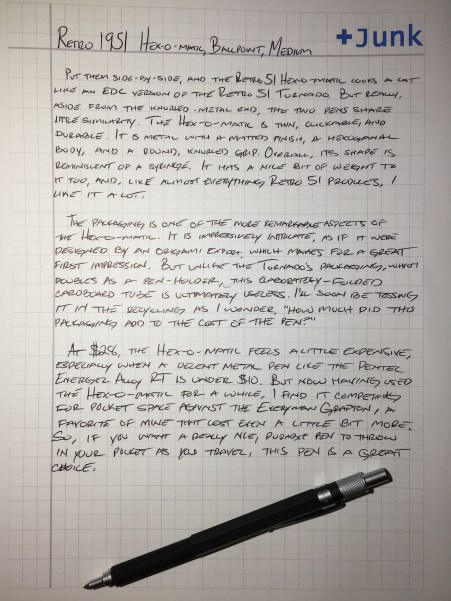 +Junk
Retro 1951 Hex-o-matic, Ballpoint, Medium
Put them side-by-side, and the Retro 51 Hex-o-matic looks a lot
like an EDC version of the Retro 51 Tornado. But really,
aside from the knurled-metal end, the two pens share
little similarity. The Hex-o-matic is thin, clickable, and
durable. It is metal with a matted finish, a hexoganal
body, and a round, knurled grip. Overall, its shape is
reminiscent of a syringe. It has a nice bit of weight to
it too, and, like almost everything Retro 51 produces, I
like it a lot.
The packaging is one of the more remarkable aspects of
the Hex-o-matic. It is impressively intricate, as if it were
designed by an origami expert, which makes for a great
first impression. But unlike the Tornado's packaging, which
doubles as a pen-holder, this elaborately-folded
cardboard tube is ultimately useless. I'll soon be tossing
it in the recycling as I wonder, "How much did this
packaging add to the cost of the pen?"
At the Hex-o-matic feels a little expensive,
especially when a decent metal pen like the Pentel
Energel Alloy RT is under $10. But now having used
the Hex-o-matic for a while, I find it competing
for pocket space against the Everyman Grafton, a
favorite of mine that cost even a little bit more.
So, if you want a really nice, durable pen to throw
in your pocket as you travel, this pen is a great
choice.